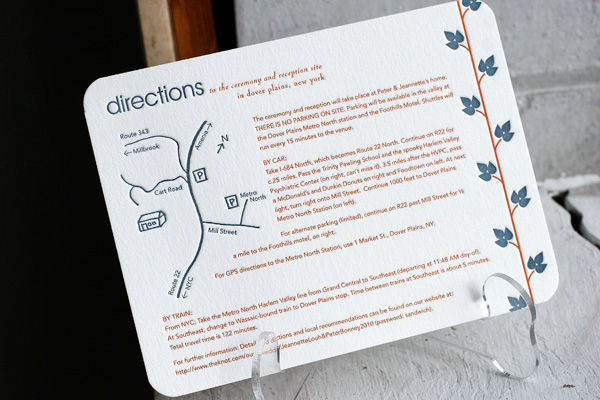 directions to the ceremony and reception site
in dover plains, new york
Route 343
Millbrook
Amenia
N
P
Cart Road
P
Metro
North
Mill Street
Route 22
NYC
The ceremony and reception will take place at Peter & Jeannette's home.
THERE IS NO PARKING ON SITE. Parking will be available in the valley at
the Dover Plains Metro North station and the Foothills Motel. Shuttles will
run every 15 minutes to the venue.
BY CAR:
Take I-684 North, which becomes Route 22 North. Continue on R22 for
c.25 miles. Pass the Trinity Pawling School and the spooky Harlem Valley
Psychiatric Center (on right, can't miss it). 3.5 miles after the HVPC, pass
a McDonald's and Dunkin Donuts on right and Foodtown on left. At next
light, turn right onto Mill Street. Continue 1000 feet to Dover Plains
Metro North Station (on left).
For alternate parking (limited), continue on R22 past Mill Street for ½
a mile to the Foothills motel, on right.
For GPS directions to the Metro North Station, use 1 Market St., Dover Plains, NY.
BY TRAIN:
From NYC: Take the Metro North Harlem Valley line from Grand Central to Southeast (departing at 11:48 AM day-of).
At Southeast, change to Wassaic-bound train to Dover Plains stop. Time between trains at Southeast is about 5 minutes.
Total travel time is 122 minutes.
For further information: directions and local recommendations can be found on our website at:
http://www.theknot.com/ JeannetteLouh&PeterBonney2010 (password: sandwich).